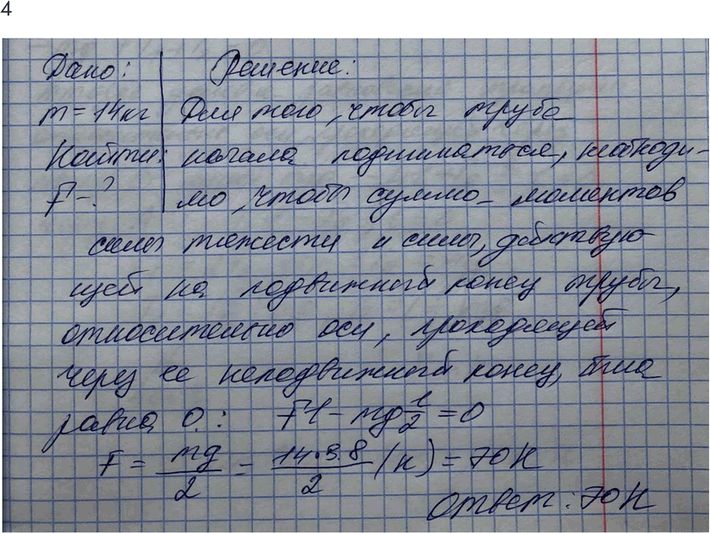 4
Дано: Решение:
m = 14кг Для того, чтобы труба
Найти: начала подниматься, необходи-
F - ? мо, чтобы сумма моментов
силы тяжести и силы, действую
щей на подвижный конец трубы,
относительно оси, проходящей
через ее неподвижный конец, была
равна 0.: Fl - mg l/2 = 0
F = mg/2 = 14·9.8/2 (н) = 70 Н
Ответ: 70 Н